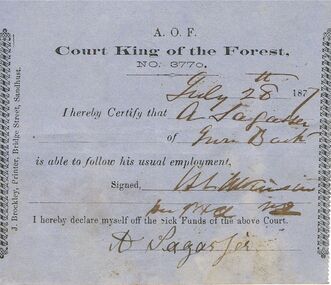 A. O. F.
Court King of the Forest,
NO. 3770.
July 28th 187
I hereby Certify that A Sagasser
of
is able to follow his usual employment.
Signed,
I hereby declare myself off the Sick Funds of the above Court.
A Sagasser
J. Brockley, Printer, Bridge Street, Sandhurst.